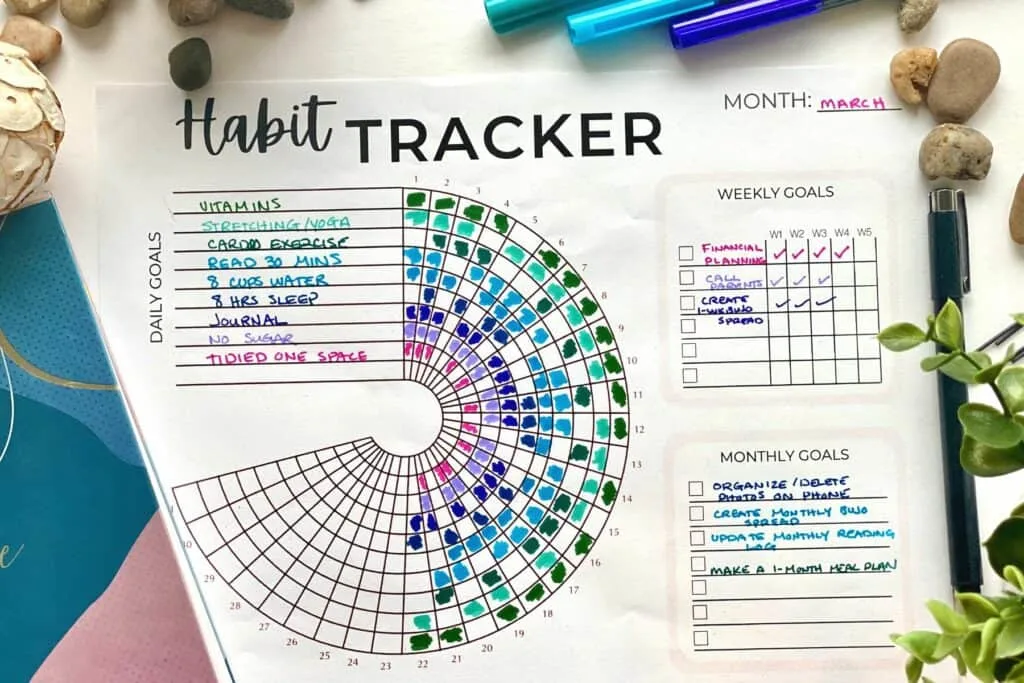 Habit TRACKER
MONTH: MARCH
DAILY GOALS
VITAMINS
STRETCHING/YOGA
CARDIO EXERCISE
READ 30 MINS
8 CUPS WATER
8 HRS SLEEP
JOURNAL
NO SUGAR
TIDIED ONE SPACE
1
2
3
4
5
6
7
8
9
10
11
12
13
14
15
16
17
18
19
20
21
22
23
24
25
26
27
28
29
30
WEEKLY GOALS
W1 W2 W3 W4 W5
FINANCIAL
PLANNING
CALL
PARENTS
CREATE
1-WK BUJO
SPREAD
MONTHLY GOALS
ORGANIZE/DELETE
PHOTOS ON PHONE
CREATE MONTHLY BUJO
SPREAD
UPDATE MONTHLY READING
LOG
MAKE A 1-MONTH MEAL PLAN